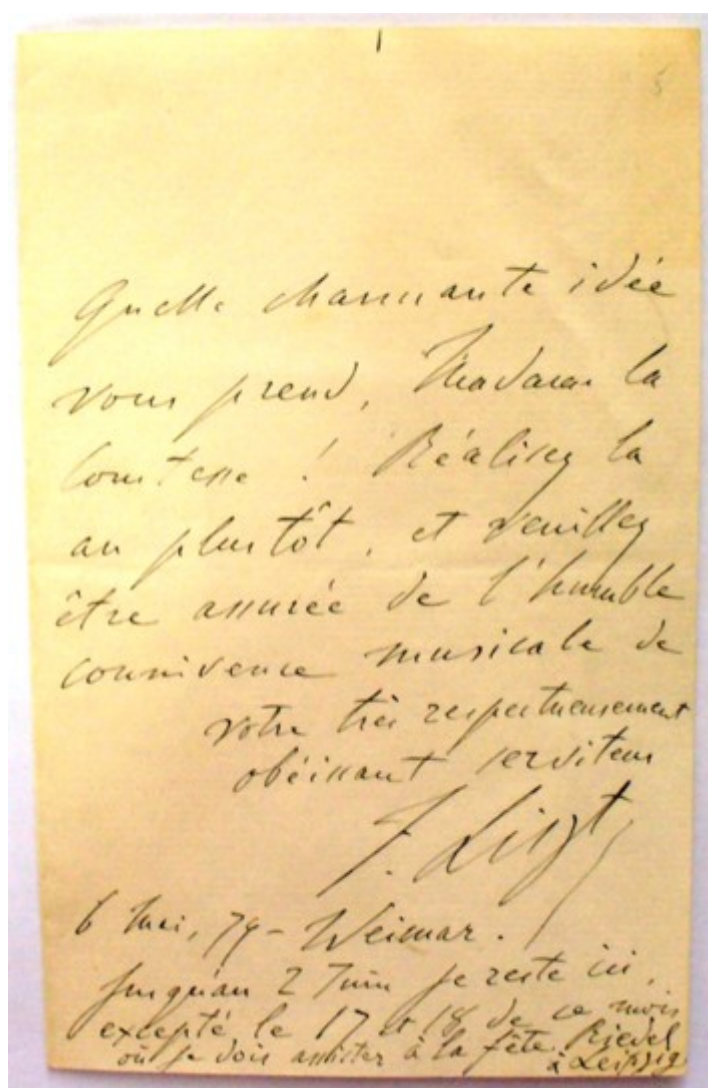 5
Quelle charmante idée
vous prend, Madame la
Comtesse ! Réalisez la
au plustôt, et veuillez
être assurée de l'humble
connivence musicale de
votre très respectueusement
obéissant serviteur
F. Liszt
6 Mai, 79 – Weimar.
Jusqu'au 2 Juin je reste ici,
excepté le 17 et 18 de ce mois
où je dois assister à la fête Riedel
à Leipzig